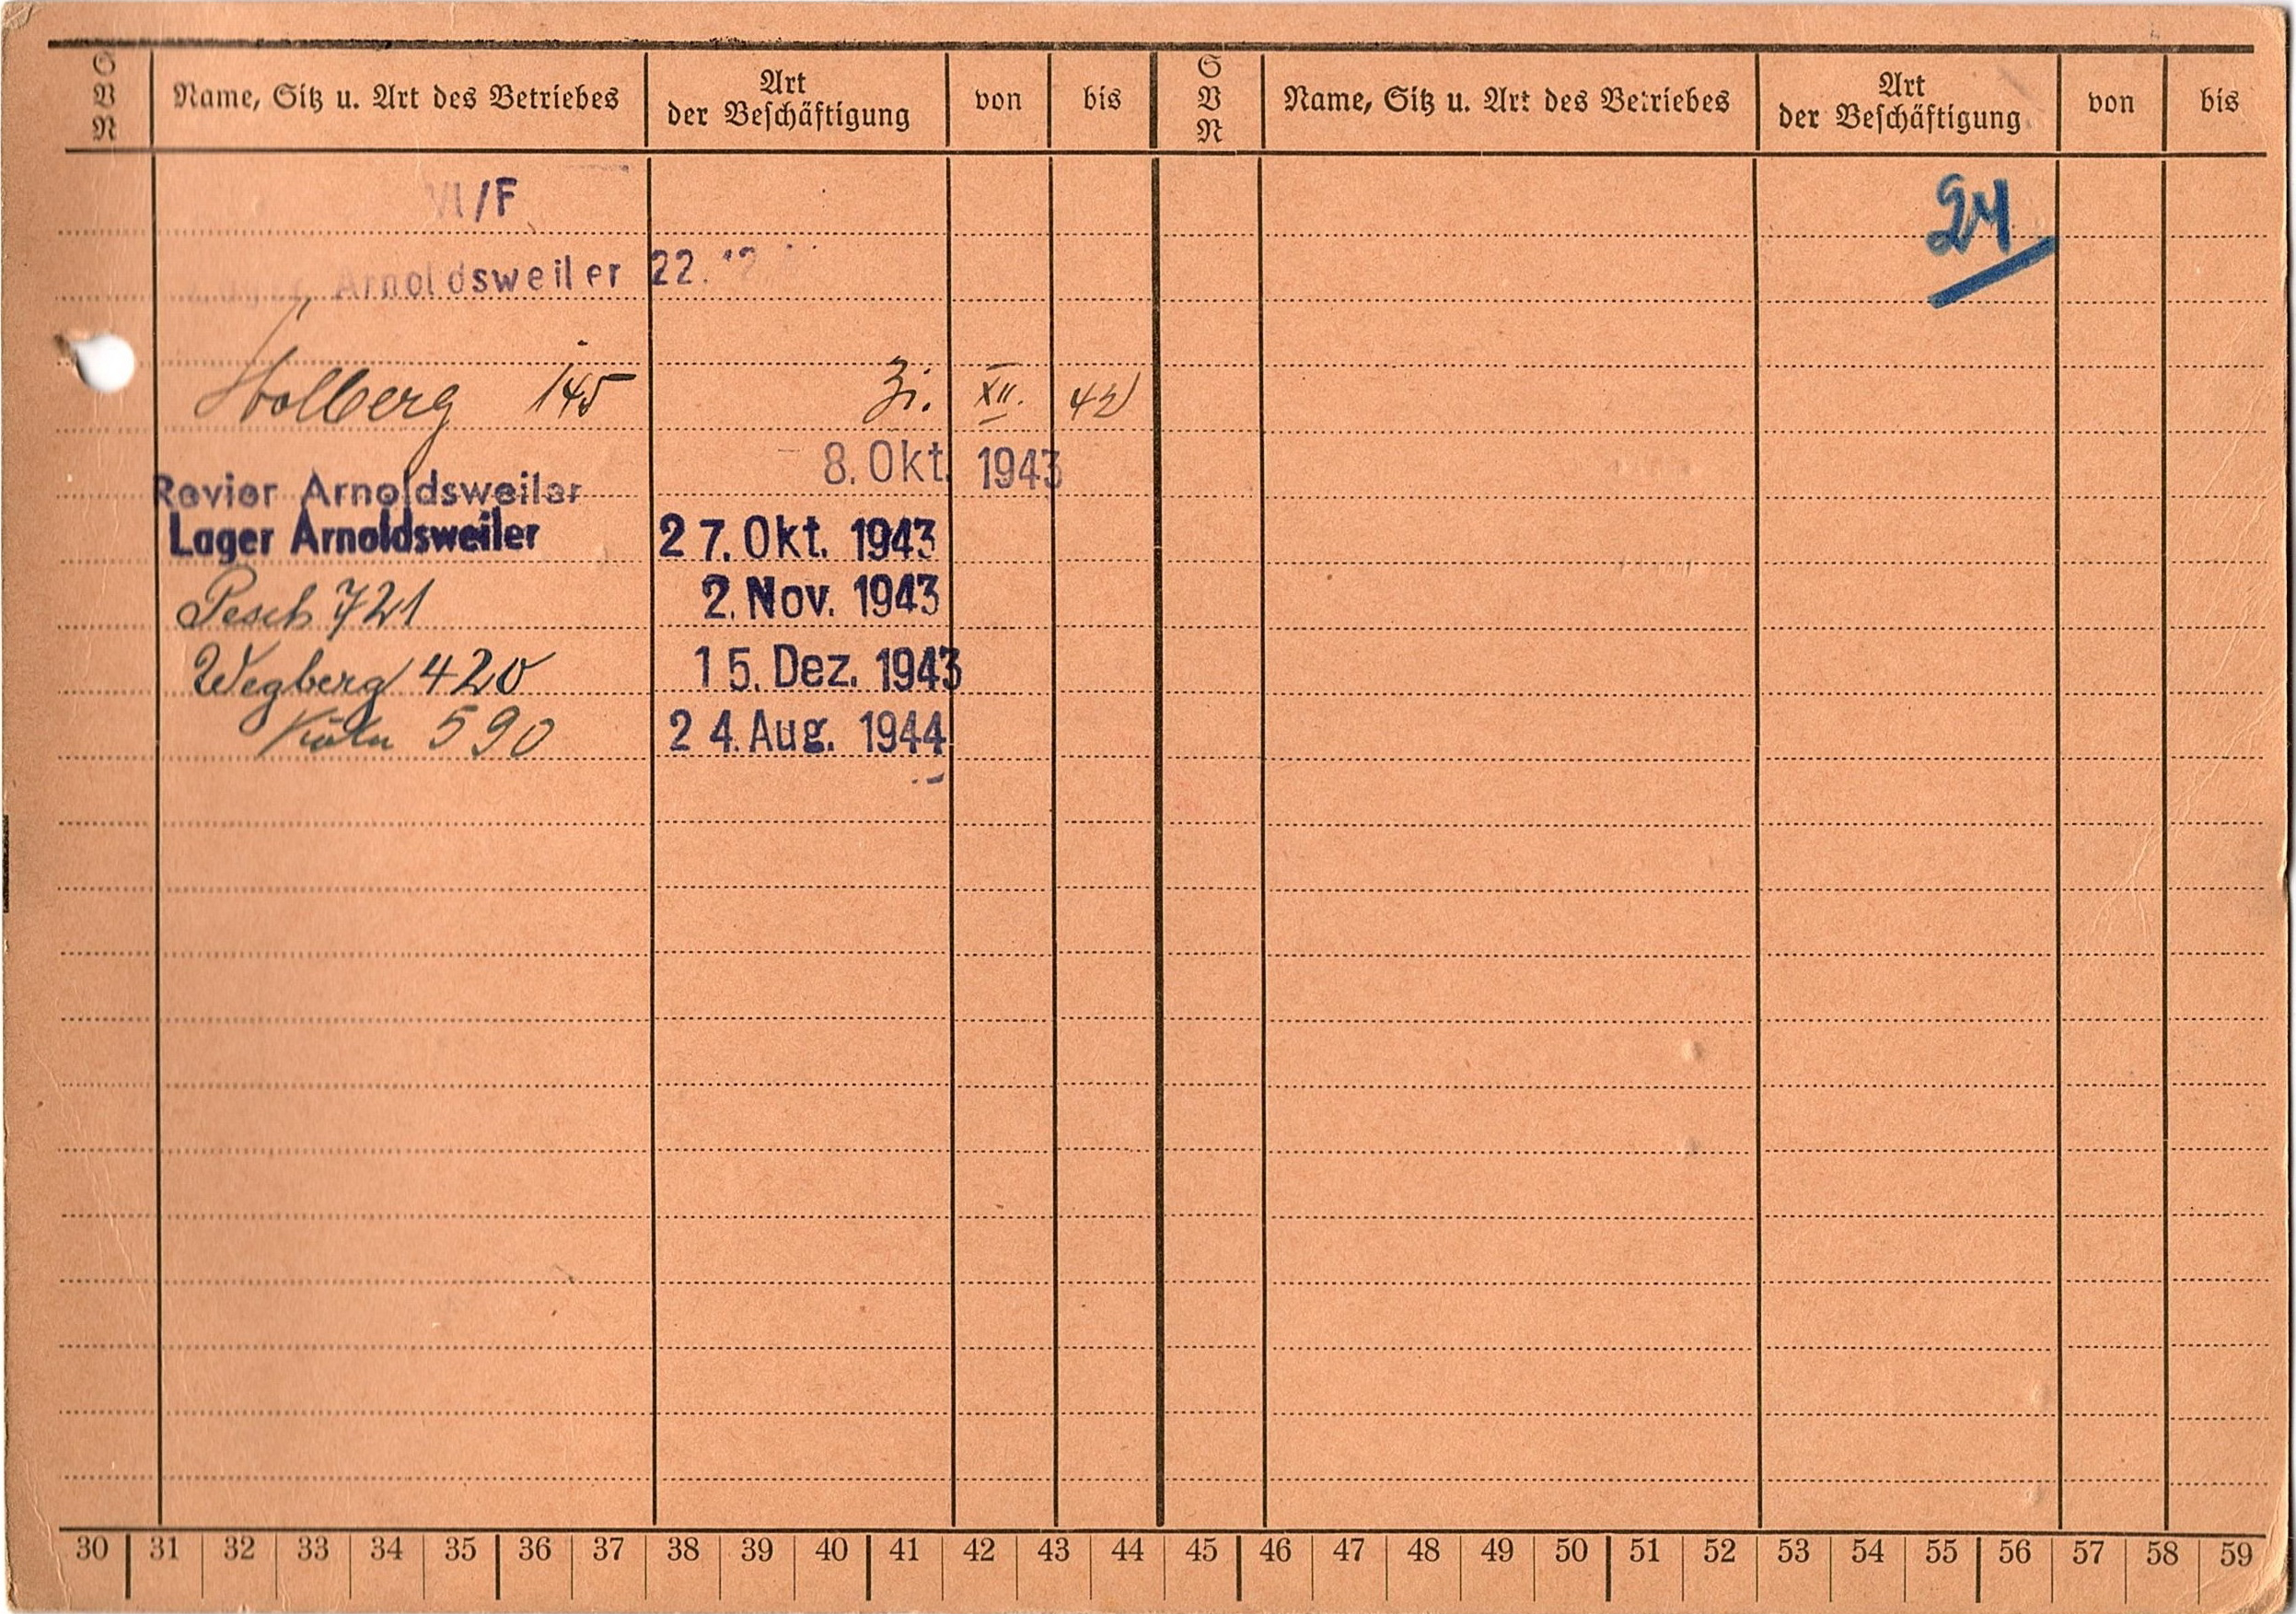 S V N Name, Sitz u. Art des Betriebes Art der Beschäftigung von bis S V N Name, Sitz u. Art des Betriebes Art der Beschäftigung von bis
VI/F 24
Arnoldsweiler 22.12.
Stolberg 145 Zi. XII. 42
8. Okt. 1943
Revier Arnoldsweiler
Lager Arnoldsweiler 27. Okt. 1943
Pesch 721 2. Nov. 1943
Wegberg 420 15. Dez. 1943
Köln 590 24. Aug. 1944
30 31 32 33 34 35 36 37 38 39 40 41 42 43 44 45 46 47 48 49 50 51 52 53 54 55 56 57 58 59